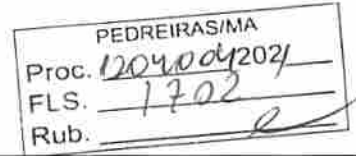 PEDREIRAS/MA
Proc. 1204004/2021
FLS. 1702
Rub.